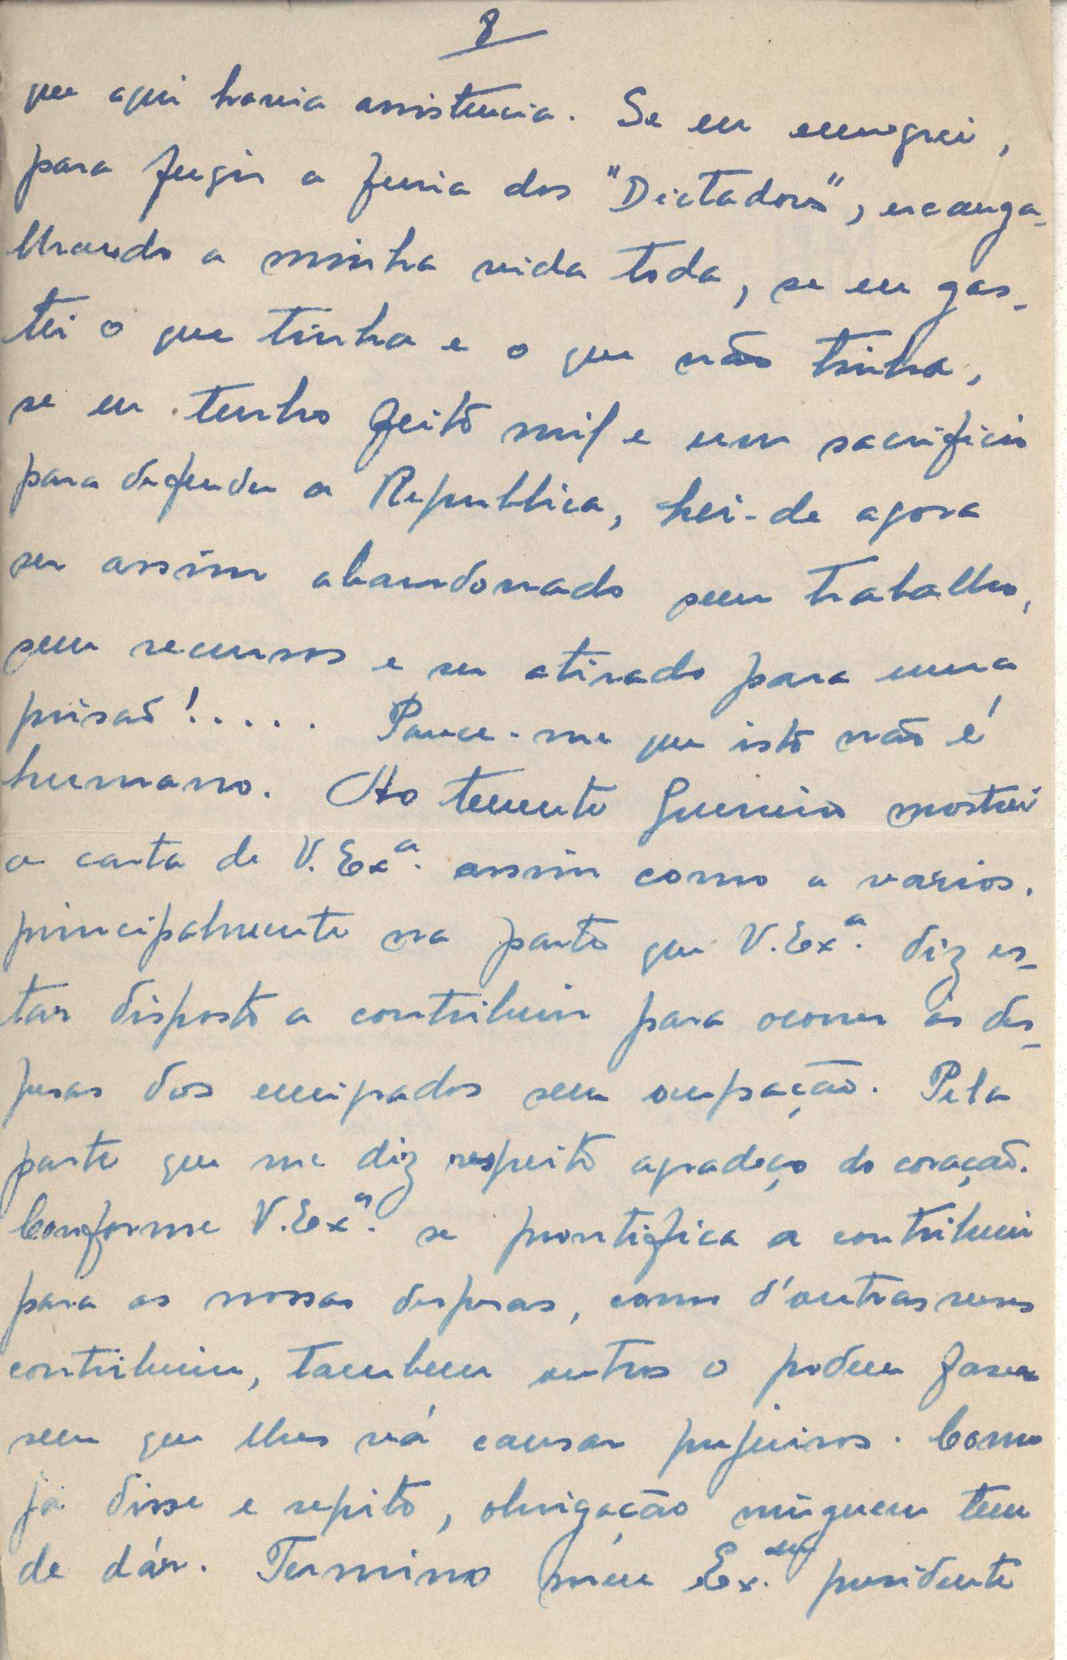 8
que aqui havia assistencia. Se eu emigrei,
para fugir a furia dos "Dictadores", escanga-
lhando a minha vida toda, se eu gas-
tei o que tinha e o que não tinha,
se eu tenho feito mil e um sacrificios
para defender a Republica, hei-de agora
ser assim abandonado sem trabalho,
sem recursos e ser atirado para uma
prisão!..... Parece-me que isto não é
humano. Ao tenente Guerreiro mostrei
a carta de V. Exª. assim como a varios.
principalmente na parte que V. Exª. diz es-
tar disposto a contribuir para ocorrer ás des-
pesas dos emigrados sem ocupação. Pela
parte que me diz respeito agradeço do coração.
Conforme V. Exª. se prontifica a contribuir
para as nossas despesas, como d'outras vezes
contribuiu, tambem outros o podem fazer
sem que lhes vá causar prejuisos. Como
já disse e repito, obrigação ninguem tem
de dár. Termino meu Ex.mo presidente